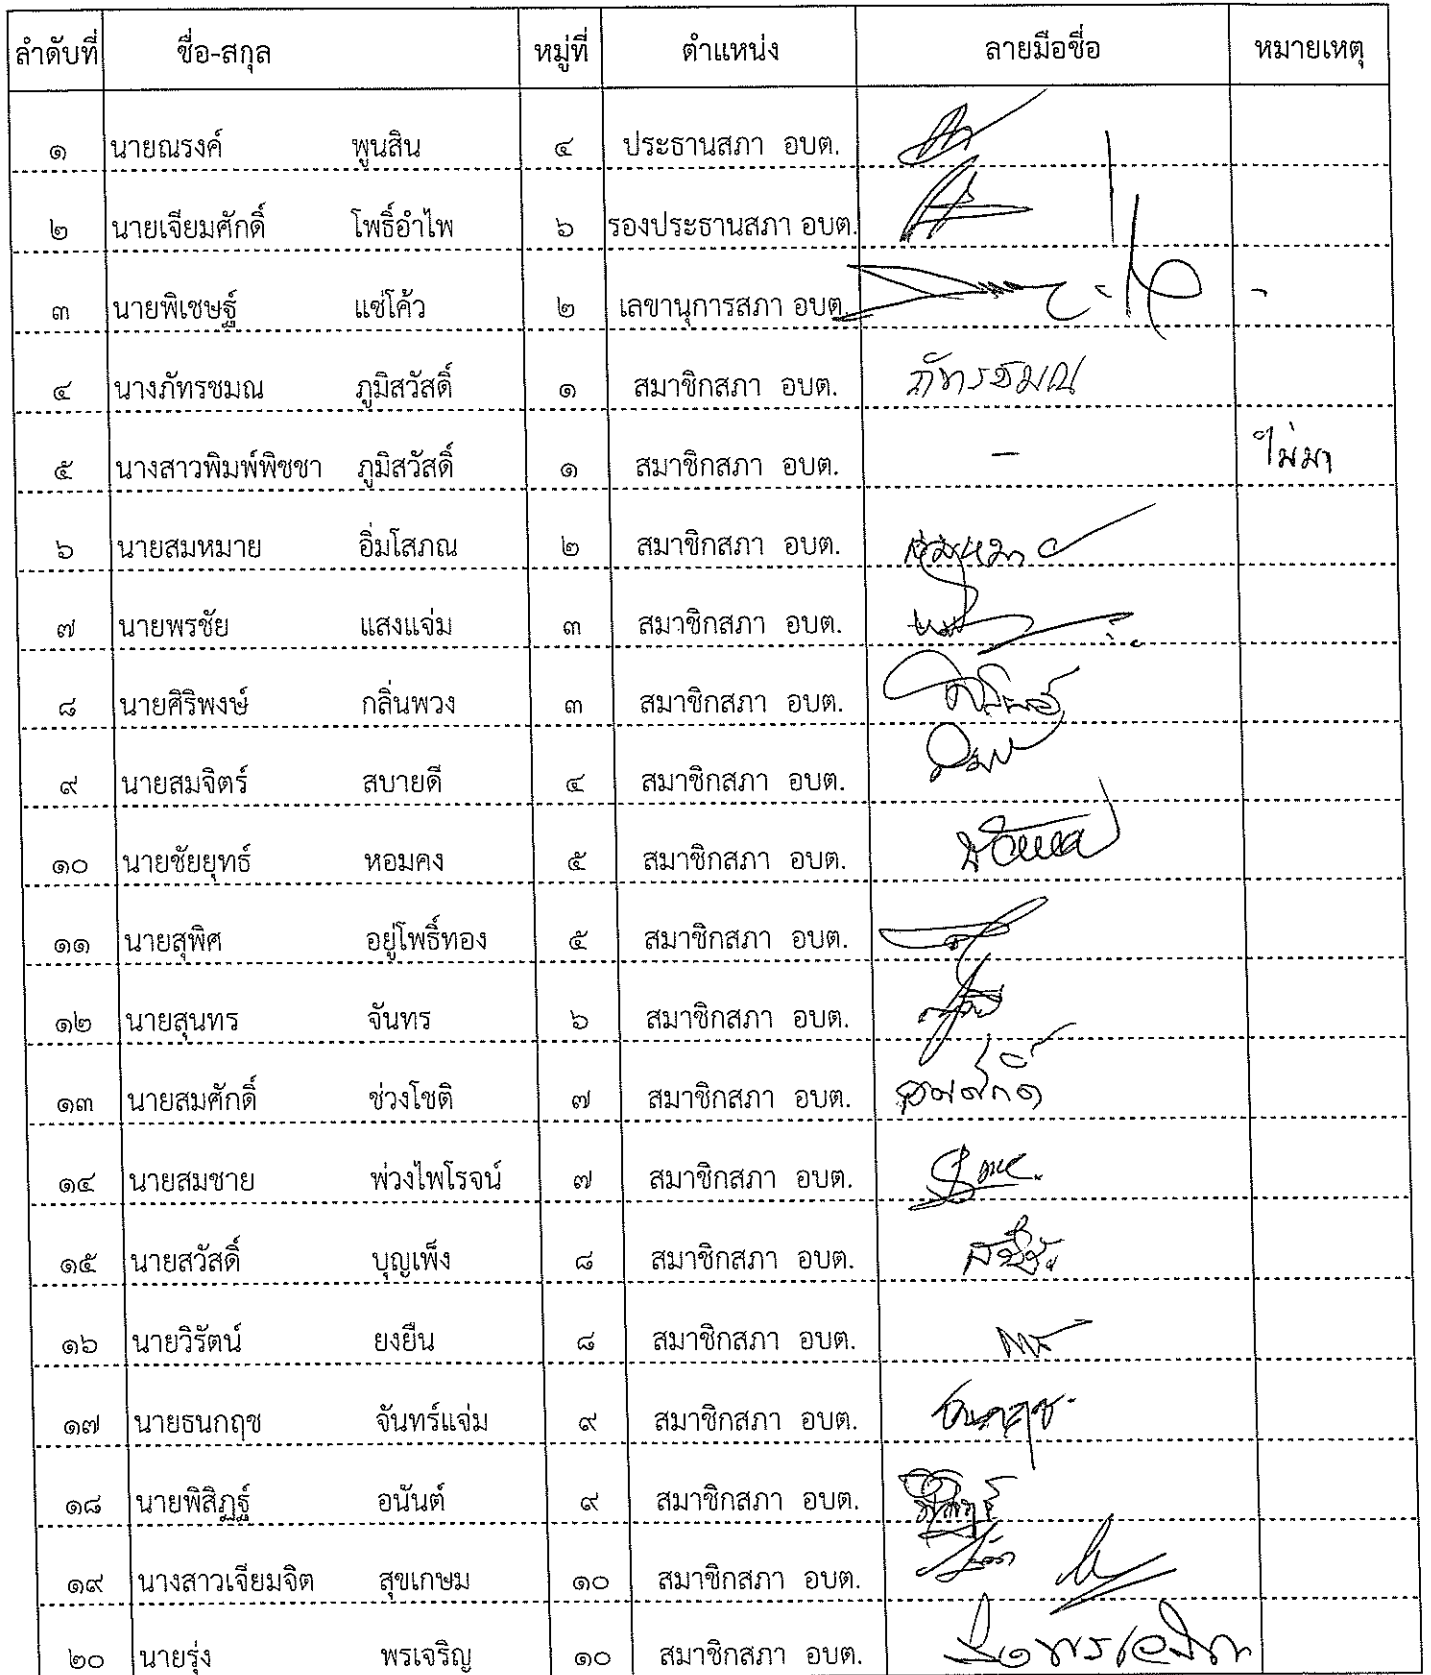 ลำดับที่ ชื่อ-สกุล หมู่ที่ ตำแหน่ง ลายมือชื่อ หมายเหตุ
๑ นายณรงค์ พูนสิน ๔ ประธานสภา อบต.
๒ นายเจียมศักดิ์ โพธิ์อำไพ ๖ รองประธานสภา อบต.
๓ นายพิเชษฐ์ แซ่โค้ว ๒ เลขานุการสภา อบต.
๔ นางภัทรชมณ ภูมิสวัสดิ์ ๑ สมาชิกสภา อบต. ภัทรชมณ
๕ นางสาวพิมพ์พิชชา ภูมิสวัสดิ์ ๑ สมาชิกสภา อบต. – ไม่มา
๖ นายสมหมาย อิ่มโสภณ ๒ สมาชิกสภา อบต. สมหมาย
๗ นายพรชัย แสงแจ่ม ๓ สมาชิกสภา อบต.
๘ นายศิริพงษ์ กลิ่นพวง ๓ สมาชิกสภา อบต.
๙ นายสมจิตร์ สบายดี ๔ สมาชิกสภา อบต.
๑๐ นายชัยยุทธ์ หอมคง ๕ สมาชิกสภา อบต.
๑๑ นายสุพิศ อยู่โพธิ์ทอง ๕ สมาชิกสภา อบต.
๑๒ นายสุนทร จันทร ๖ สมาชิกสภา อบต.
๑๓ นายสมศักดิ์ ช่วงโชติ ๗ สมาชิกสภา อบต. สมศักดิ์
๑๔ นายสมชาย พ่วงไพโรจน์ ๗ สมาชิกสภา อบต.
๑๕ นายสวัสดิ์ บุญเพ็ง ๘ สมาชิกสภา อบต.
๑๖ นายวิรัตน์ ยงยืน ๘ สมาชิกสภา อบต.
๑๗ นายธนกฤช จันทร์แจ่ม ๙ สมาชิกสภา อบต. ธนกฤช
๑๘ นายพิสิฏฐ์ อนันต์ ๙ สมาชิกสภา อบต.
๑๙ นางสาวเจียมจิต สุขเกษม ๑๐ สมาชิกสภา อบต.
๒๐ นายรุ่ง พรเจริญ ๑๐ สมาชิกสภา อบต.